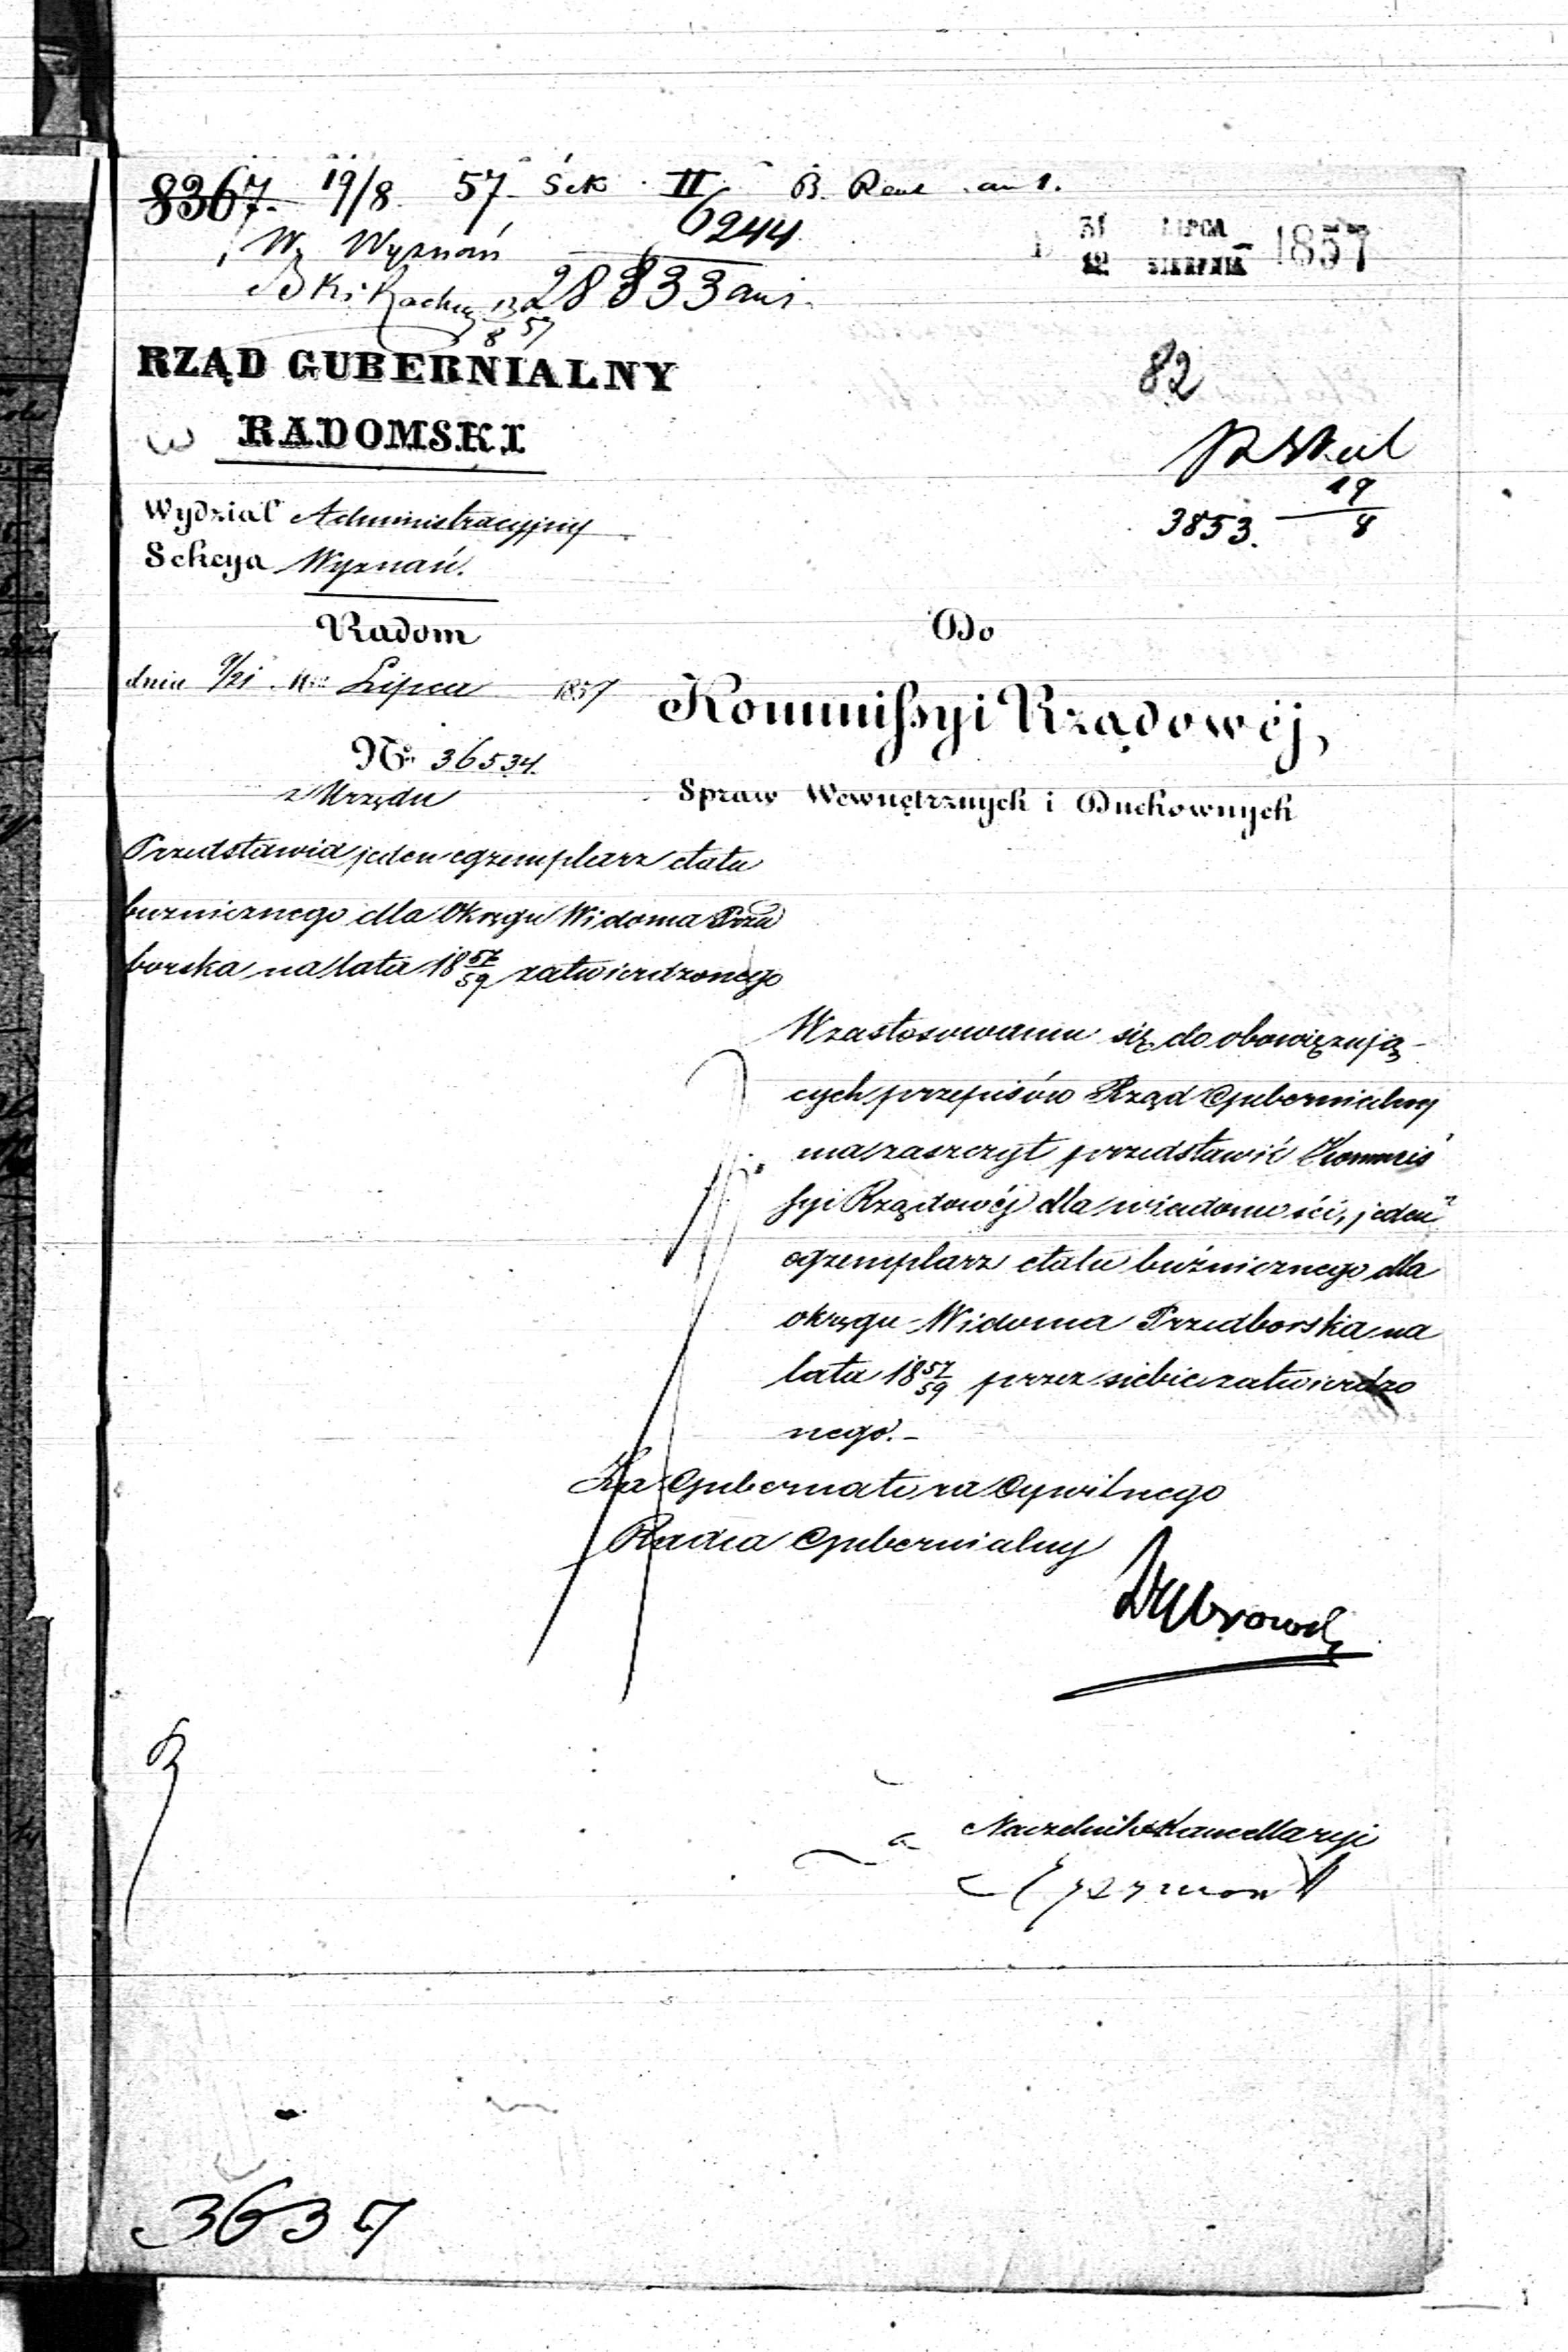 8367. 19/8 57 Sek II B. Rent an 1.
W. Wyznań 6244
28833 an 1.
13/8 57
31 LIPCA
12 SIERPNIA 1857
RZĄD GUBERNIALNY
RADOMSKI
82
19/8
3853.
Wydział Administracyjny
Sekcya Wyznań.
Radom
dnia 9/21 Mca Lipca 1857
No. 36534.
z Urzędu
Do
Kommissyi Rządowéj,
Spraw Wewnętrznych i Duchownych
Przedstawia jeden egzemplarz etatu
buznicznego dla Okręgu Widoma Przed
borska na lata 18 57/59 zatwierdzonego
W zastosowaniu się do obowięzują-
cych przepisów Rząd Gubernialny
ma zaszczyt przedstawić Kommis
syi Rządowéj dla wiadomości, jeden
egzemplarz etatu buźnicznego dla
okręgu Widoma Przedborska na
lata 18 57/59 przez siebie zatwierdzo
nego.-
Za Gubernatora Cywilnego
Radca Gubernialny
Dąbrowski
Naczelnik Kancellaryi
3637